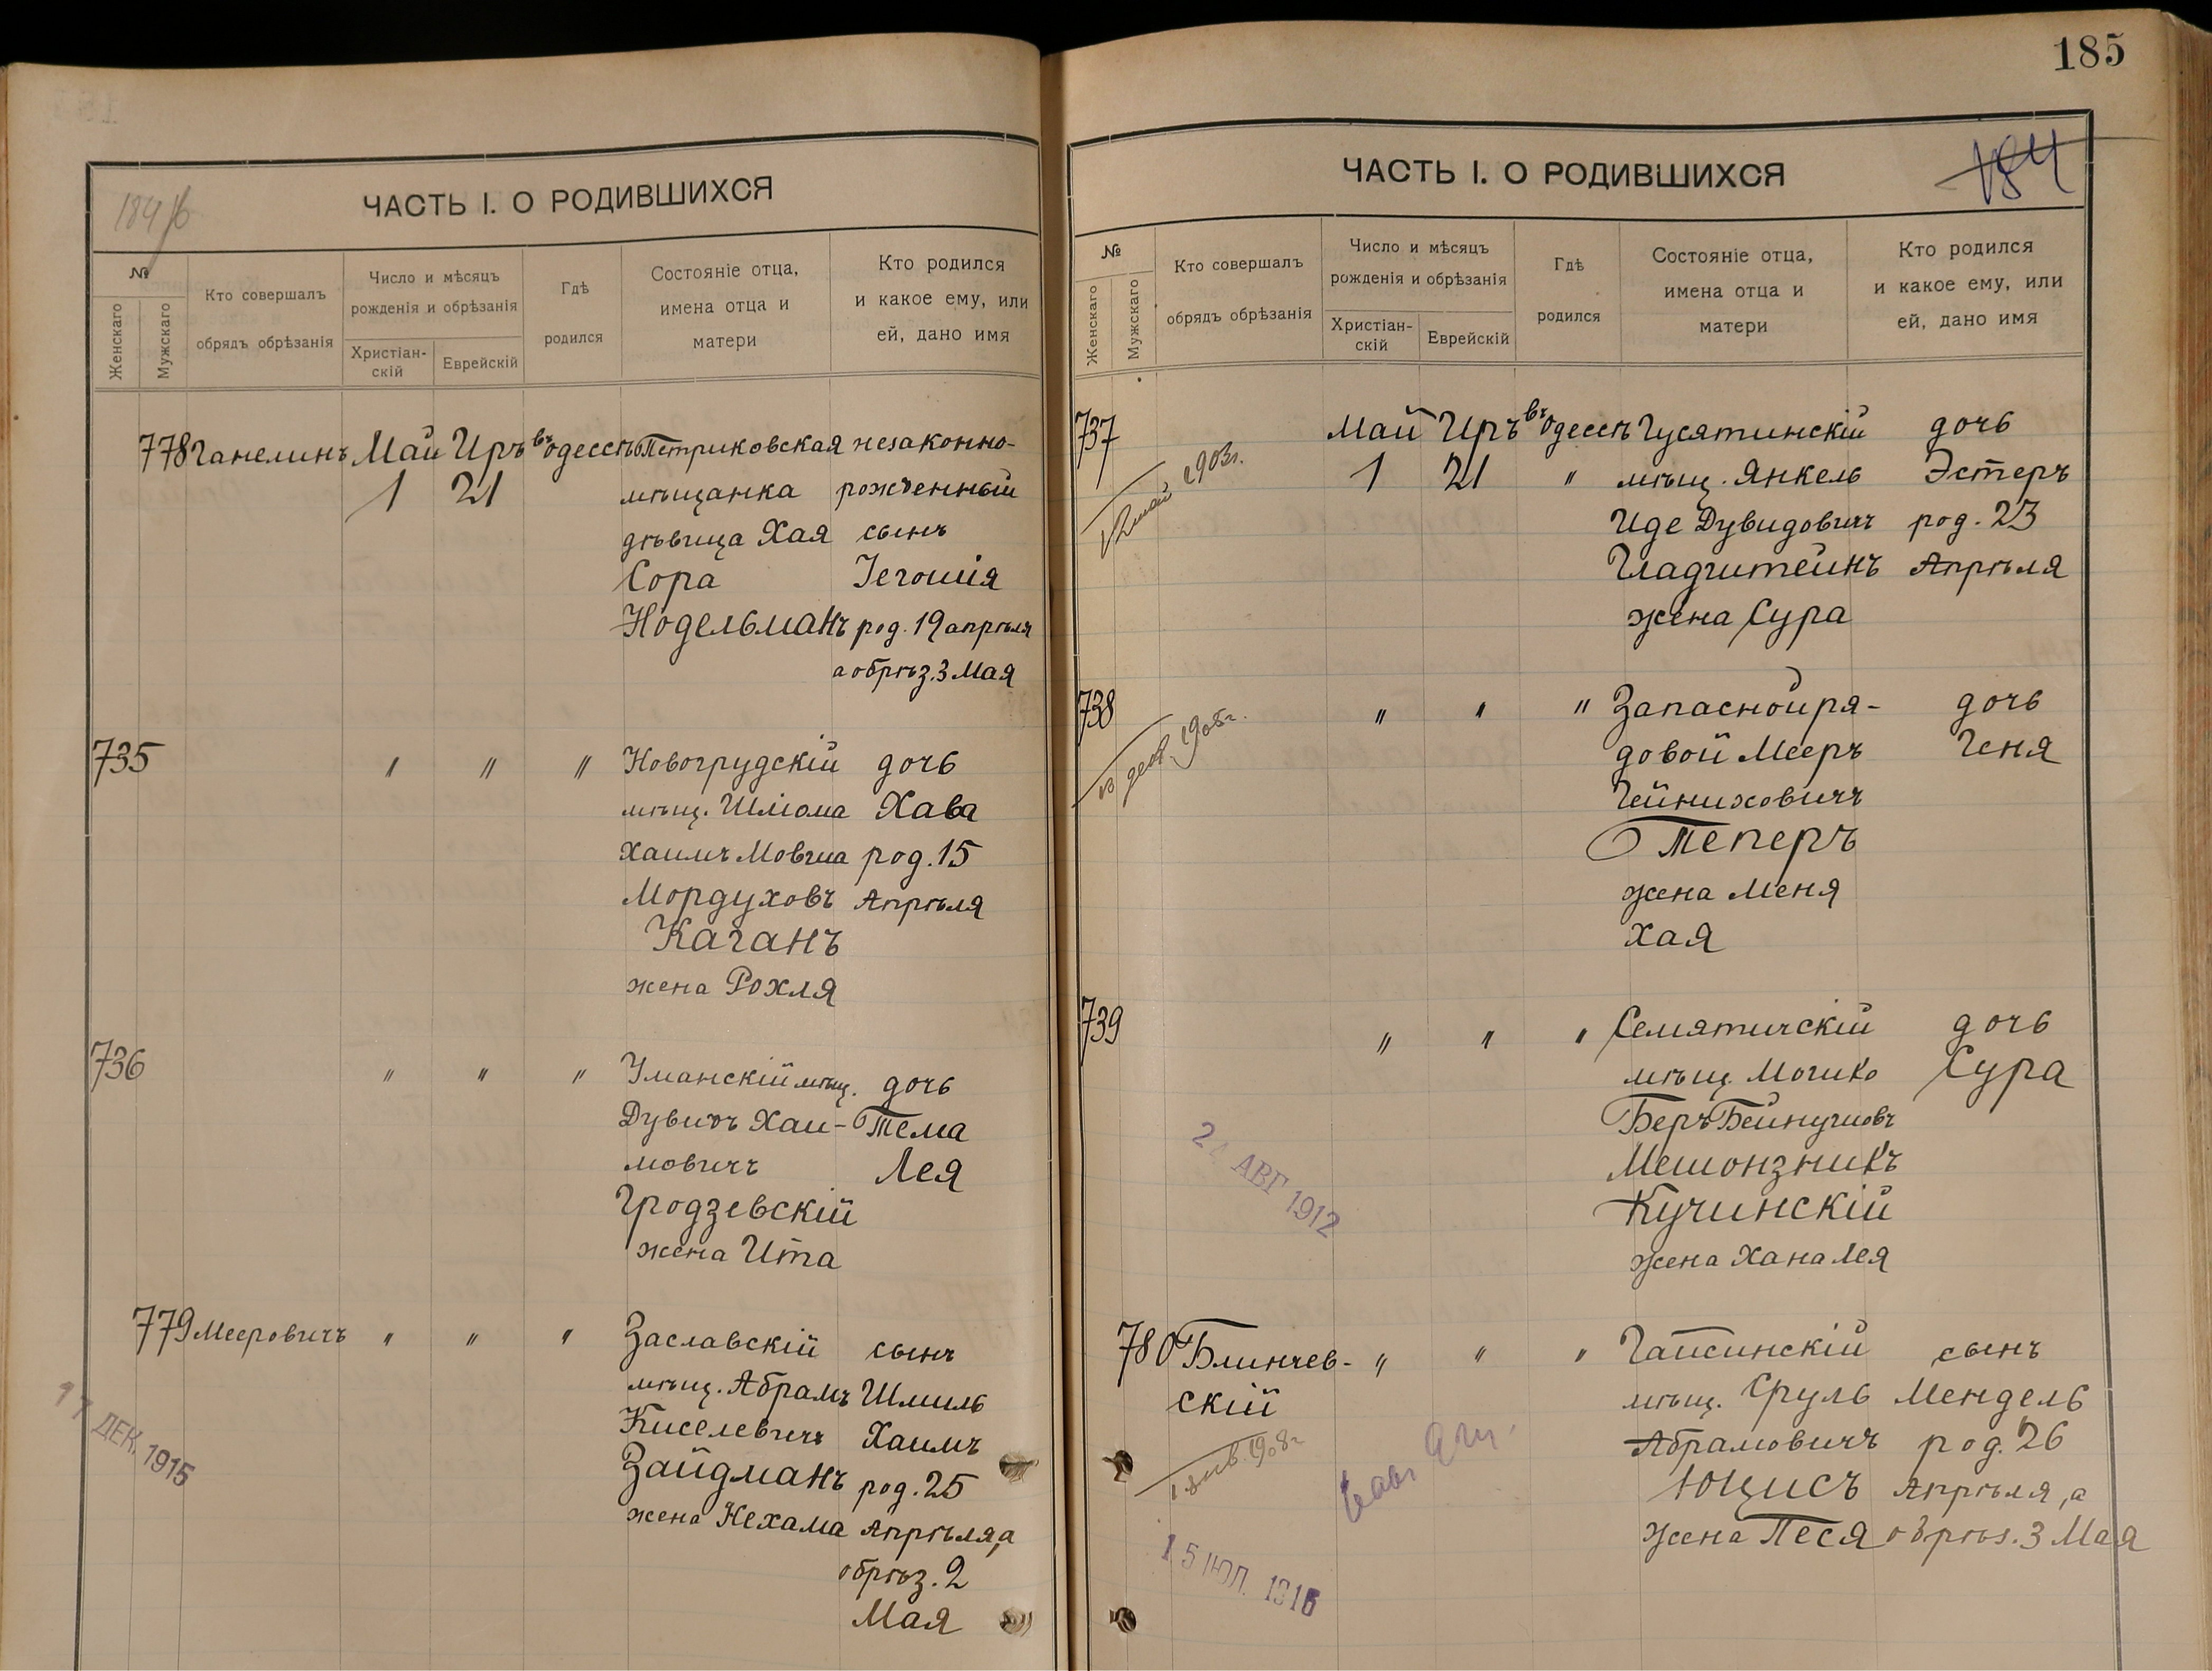 185
184 об
ЧАСТЬ I. О РОДИВШИХСЯ
№
Женскаго
Мужскаго
Кто совершалъ
обрядъ обрѣзанія
Число и мѣсяцъ
рожденія и обрѣзанія
Христіан-
скій
Еврейскій
Гдѣ
родился
Состояніе отца,
имена отца и
матери
Кто родился
и какое ему, или
ей, дано имя
778 Ганелинъ Май Иръ въ Одессѣ Петриковская незаконно-
1 21 мѣщанка рожденный
дѣвица Хая сынъ
Сора Іегошія
Нодельманъ род. 19 апрѣля
а обрѣз. 3 Мая
735 " " " Новогрудскій дочь
мѣщ. Шліома Хава
Хаимъ Мовша род. 15
Мордуховъ Апрѣля
Каганъ
жена Рохля
736 " " " Уманскій мѣщ. дочь
Дувидъ Хаи- Тема
мовичъ Лея
Гродзевскій
жена Ита
779 Мееровичъ " " " Заславскій сынъ
мѣщ. Абрамъ Шмиль
Киселевичъ Хаимъ
Зайдманъ род. 25
жена Нехама Апрѣля, а
обрѣз. 2
Мая
17 ДЕК. 1915
ЧАСТЬ I. О РОДИВШИХСЯ
184
№
Женскаго
Мужскаго
Кто совершалъ
обрядъ обрѣзанія
Число и мѣсяцъ
рожденія и обрѣзанія
Христіан-
скій
Еврейскій
Гдѣ
родился
Состояніе отца,
имена отца и
матери
Кто родился
и какое ему, или
ей, дано имя
737 Май Иръ въ Одессѣ Гусятинскій дочь
1 21 " мѣщ. Янкель Эстеръ
Иде Дувидовичъ род. 23
Гладштейнъ Апрѣля
жена Сура
12 май 1903 г.
738 " " " Запасной ря- дочь
довой Мееръ Геня
Гейниховичъ
Теперъ
жена Меня
Хая
1908 г.
739 " " " Семятичскій дочь
мѣщ. Мошко Сура
Беръ Бейнушовъ
Мешонзникъ
Кучинскій
жена Хана Лея
24 АВГ 1912
780 Блинчев- " " " Гайсинскій сынъ
скій мѣщ. Сруль Мендель
Абрамовичъ род. 26
Юцисъ Апрѣля, а
жена Песя обрѣз. 3 Мая
1908 г.
15 ІЮЛ. 1916